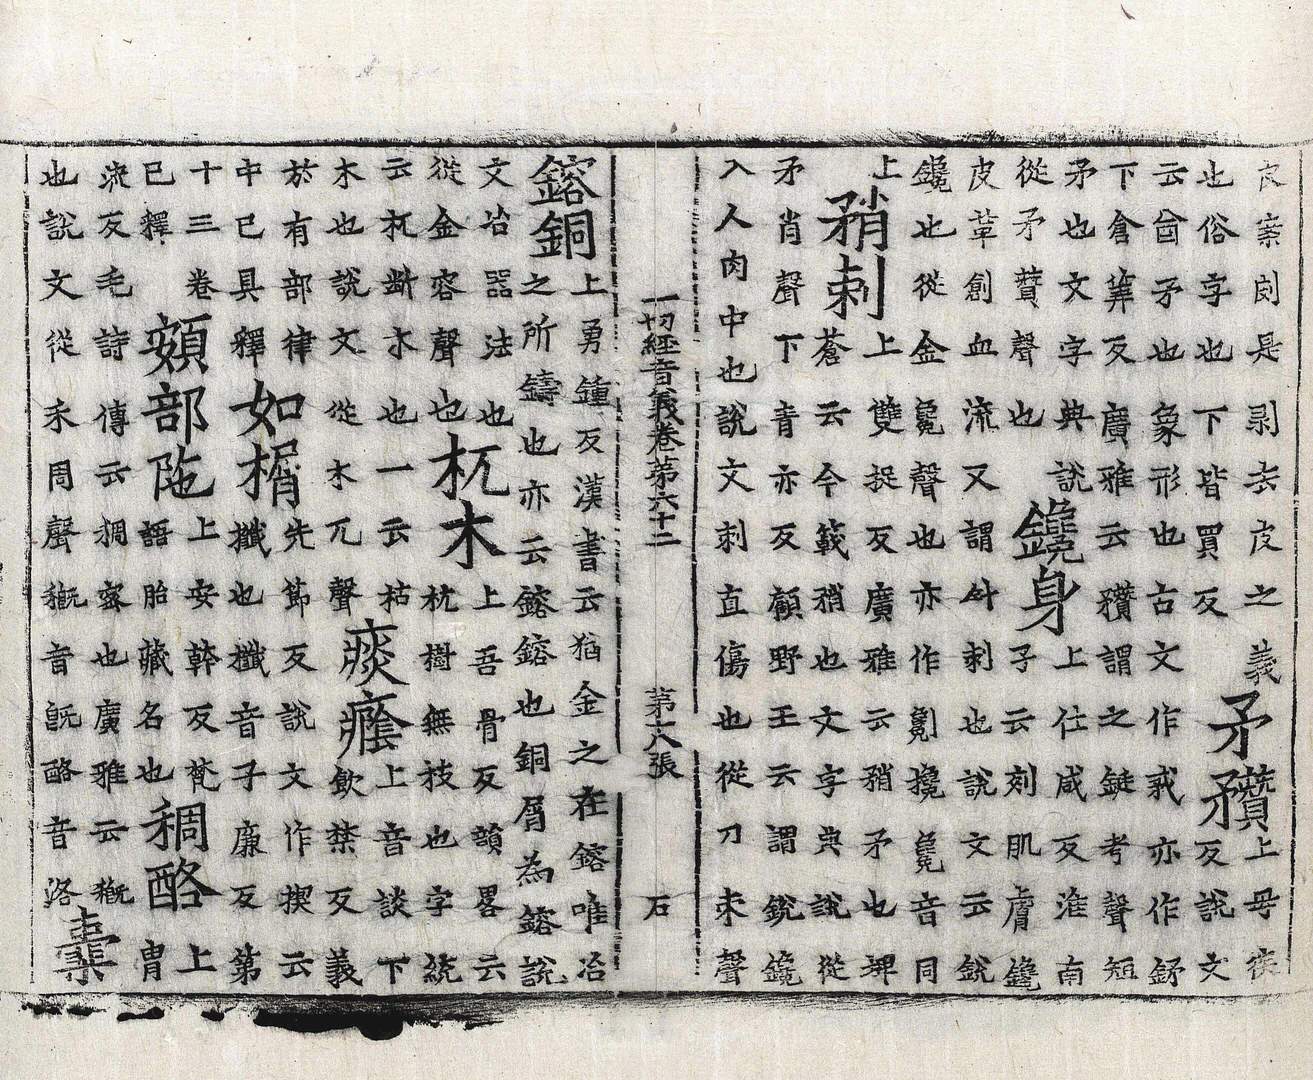 皮案是剥去皮之義矛𥎝上母侯
也俗字也下皆買反反說文
云酋矛也象形也古文作𢦧亦作䤾
下倉筭反廣雅云𥎝謂之鋋考聲短
矛也文字典說鑱身上仕咸反淮南
從矛贊聲也子云刻肌膚鑱
皮革創血流又謂針刺也說文云銳
鑱也從金毚聲也亦作劖攙毚音同
上矟刺上雙捉反廣雅云矟矛也埤
蒼云今䉡矟也文字典說從
矛肖聲下青亦反顧野王云謂銳鑱
入人肉中也說文刺直傷也從刀朿聲
一切經音義卷苐六十二 苐六張 石
鎔銅上勇鍾反漢書云猶金之在鎔唯冶
之所鑄也亦云鎔鎔也銅屑為鎔說
文冶器法也杌木上吾骨反韻畧云
從金容聲也杌樹無枝也字統
云杌斷木也一云枯痰癊上音談下
木也說文從木兀聲飲禁反義
於有部律如㮞先節反說文作楔云
中已具釋櫼也櫼音子廉反第
十三卷頞部陁上安幹反梵稠酪上
已釋語胎藏名也胄
流反毛詩傳云稠密也廣雅云穊
也說文從禾周聲穊音旣酪音洛橐